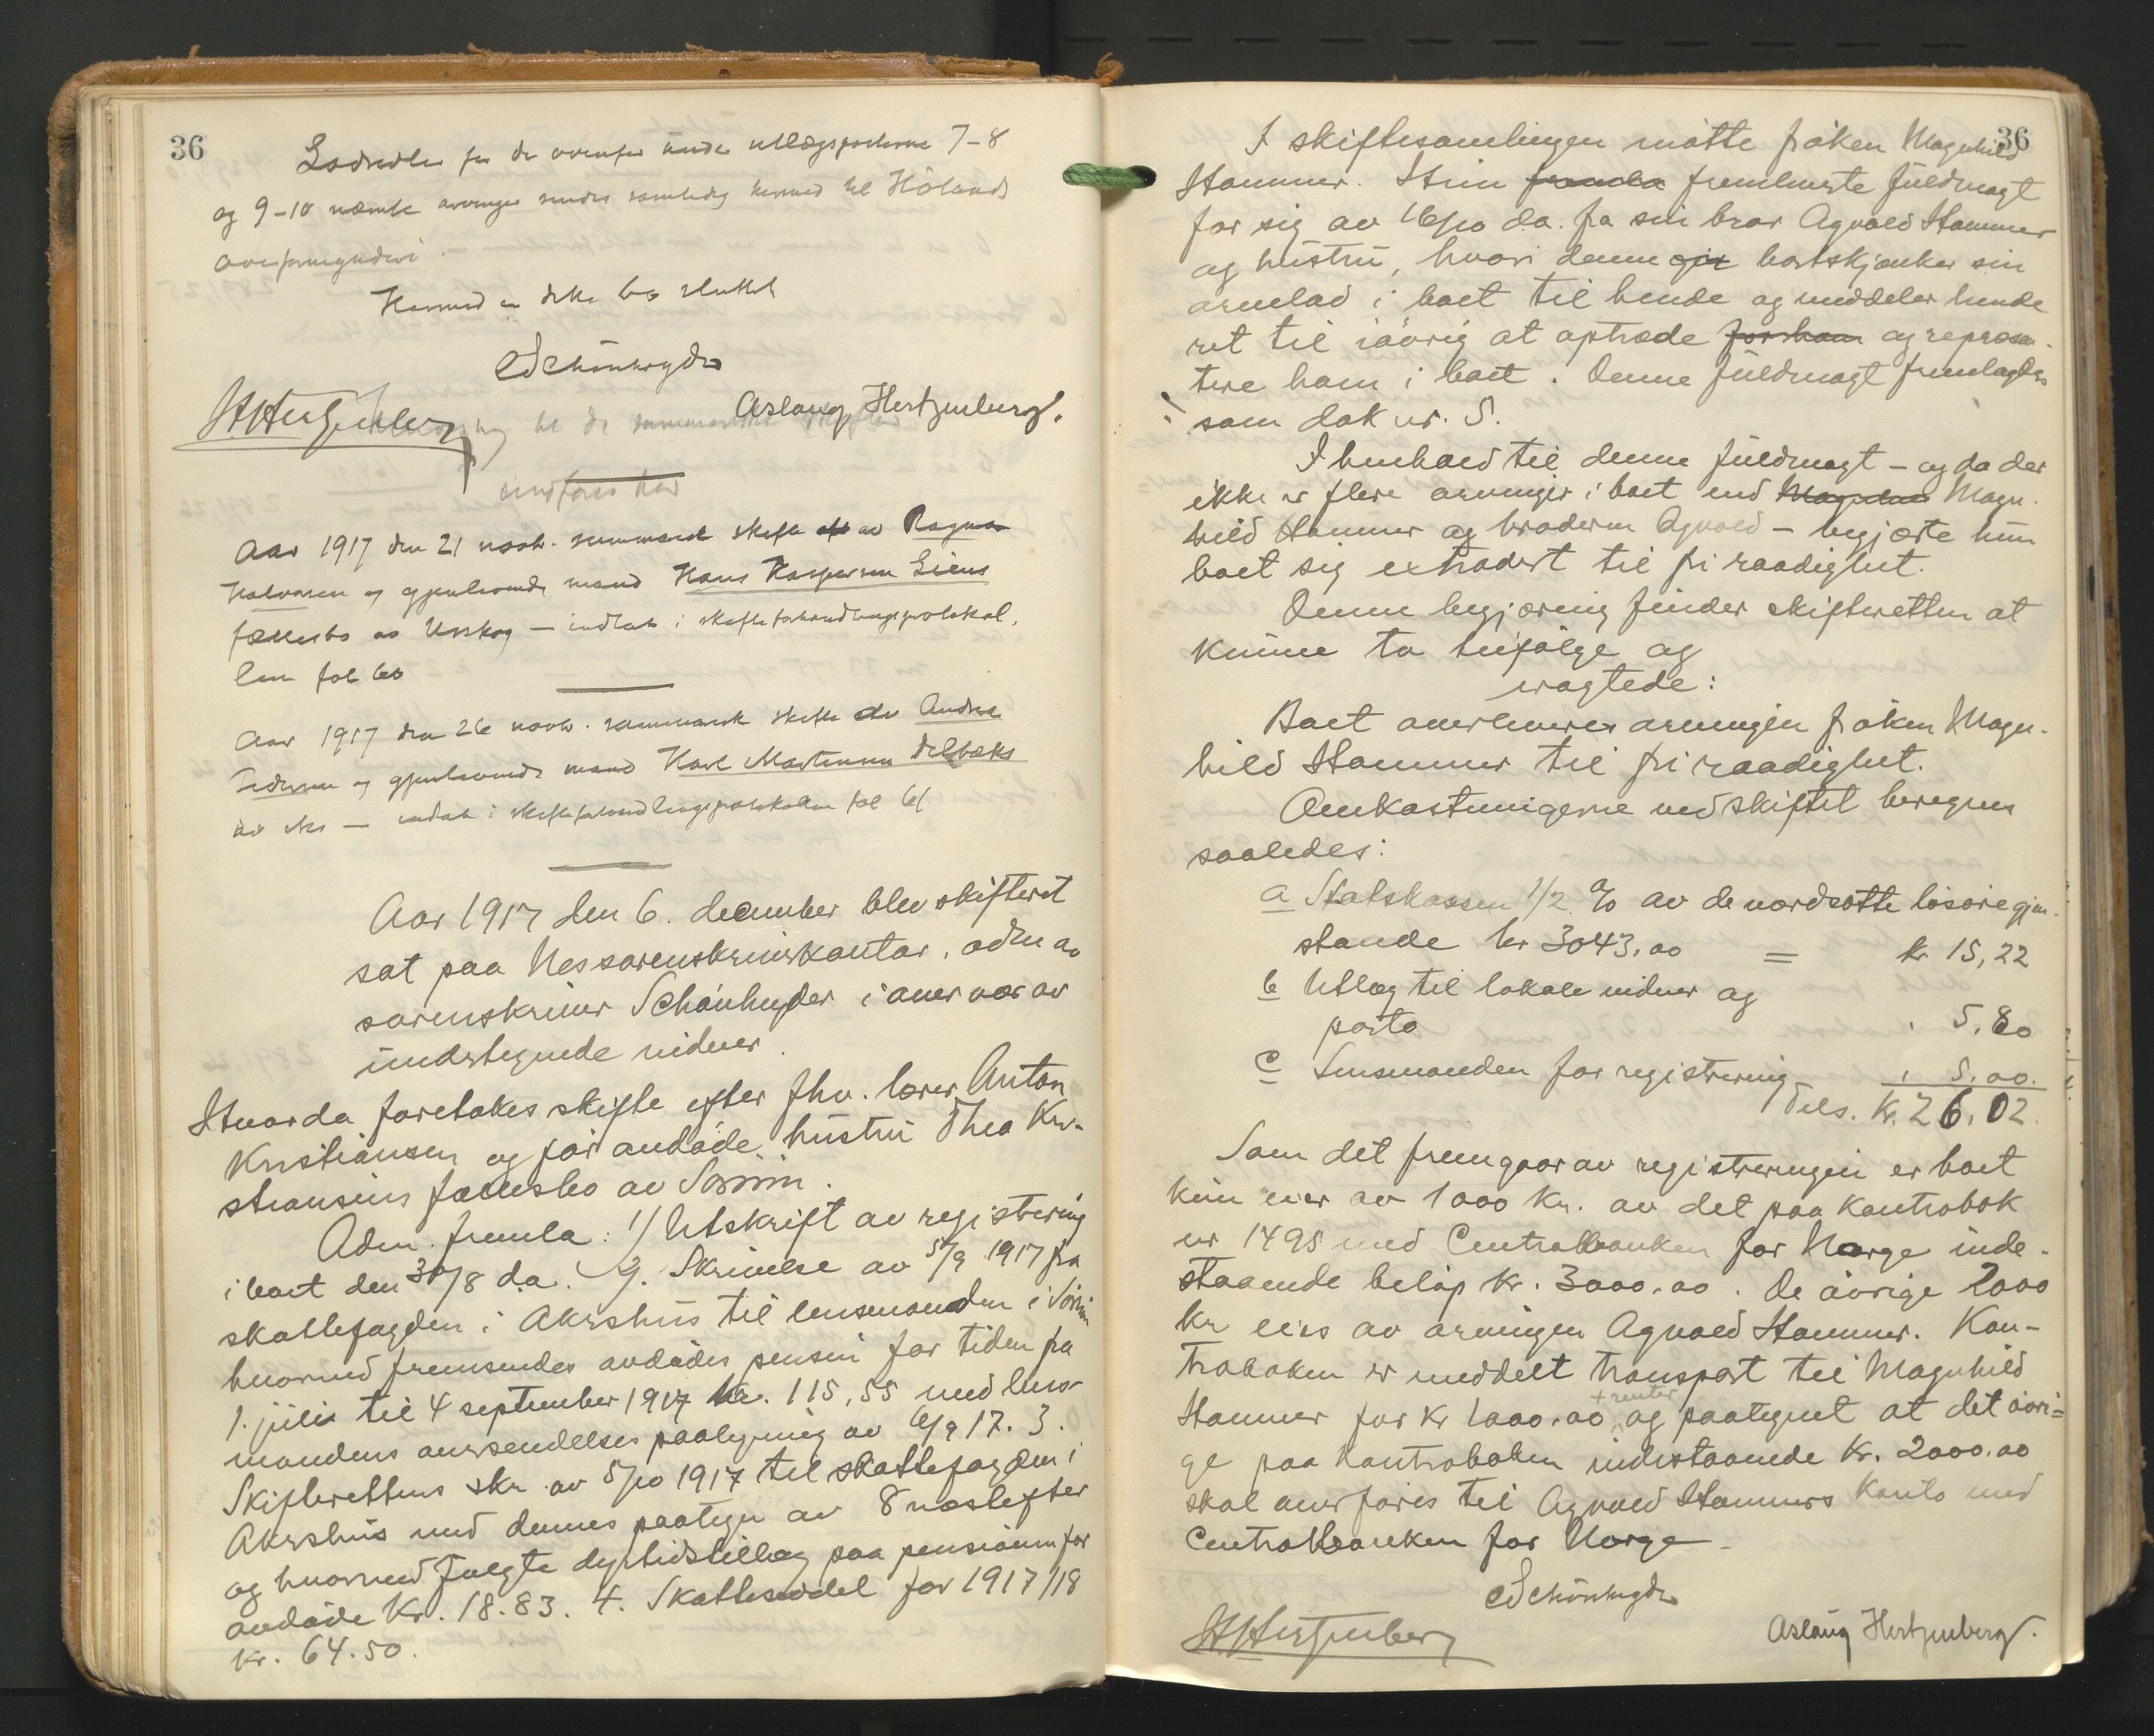 36
Lodsedler for de ovenfor under utlægsposterne 7-8
og 9-10 nævnte arvinger sendes samtidig hermed til Hölands
overformynderi.
Hermed er dette bo sluttet
Schönheyder
Aslaug Hertzenberg.
Aar 1917 den 21 novb. summarisk skifte av Ragna
Halvorsen og gjenlevende mand Hans Kaspersen Liens
fællesbo av Urskog — indtat i skifteforhandlingsprotokol-
len fol 60
Aar 1917 den 26 novb. summarisk skifte av Andrea
Pedersen og gjenlevende mand Karl Martinsen Delbæks
av Nes — indtat i skifteforhandlingsprotokollen fol 61
Aar 1917 den 6. december blev skifteret
sat paa Nes sorenskriverkontor, adm av
sorenskriver Schönheyder i overvær av
undertegnede vidner.
Hvorda foretokes skifte efter fhv. lærer Anton
Kristiansen og før avdöde hustru Thea Kri-
stiansens fællesbo av Sörum.
Adm. fremla: 1/ Utskrift av registrering
i boet den 30/8 d.a. 2. Skrivelse av 5/9 1917 fra
skattefogden i Akershus til lensmanden i Sörum
hvormed fremsendes avdödes pension for tiden fra
1. juli til 4 september 1917 kr. 115,55 med lens-
mandens oversendelses paategning av 6/9 17. 3.
Skifterettens skr. av 5/10 1917 til skattefogden i
Akershus med dennes paategn av 8 næstefter
og hvormed fulgte dyrtidstillæg paa pensionen for
avdöde Kr. 18.83. 4. Skatteseddel for 1917/18
Kr. 64.50.
36
I skiftesamlingen mötte fröken Magnhild
Hammer. Hun fremla fremleverte fuldmagt
for sig av 16/10 d.a. fra sin bror Agvald Hammer
og hustru, hvori denne gir bortskjænker sin
arvelod i boet til hende og meddeler hende
ret til iövrig at optræde for ham og repræsen-
tere ham i boet. Denne fuldmagt fremlagdes
som dok nr. 5.
I henhold til denne fuldmagt – og da der
ikke er flere arvinger i boet end Magnhild Magn-
hild Hammer og broderen Agvald – begjærte hun
boet sig extradert til fri raadighet.
Denne begjæring finder skifteretten at
kunne ta tilfölge og
eragtede:
Boet overleveres arvingen fröken Magn-
hild Hammer til fri raadighet.
Omkostningerne ved skiftet beregnes
saaledes:
a Statskassen 1/2 % av de værdsatte lösöregjen-
stande kr 3043,00 = kr 15,22
b Utlæg til lokale vidner og
porto " 5,80
c Lensmanden for registrering " 5,00.
Tils. Kr. 26,02.
Som det fremgaar av registreringen er boet
kun eier av 1000 Kr. av det paa Kontrabok
nr 1495 med Centralbanken for Norge inde-
staaende belöp Kr. 3000.00. De övrige 2000
kr eies av arvingen Agvald Hammer. Kon-
traboken er meddelt transport til Magnhild
+ renter
Hammer for Kr 1000.00 og paategnet at det övri=
ge paa kontraboken indestaaende Kr. 2000.00
skal overföres til Agvald Hammers Konto med
Centralbanken for Norge –
Schönheyder
Aslaug Hertzenberg.